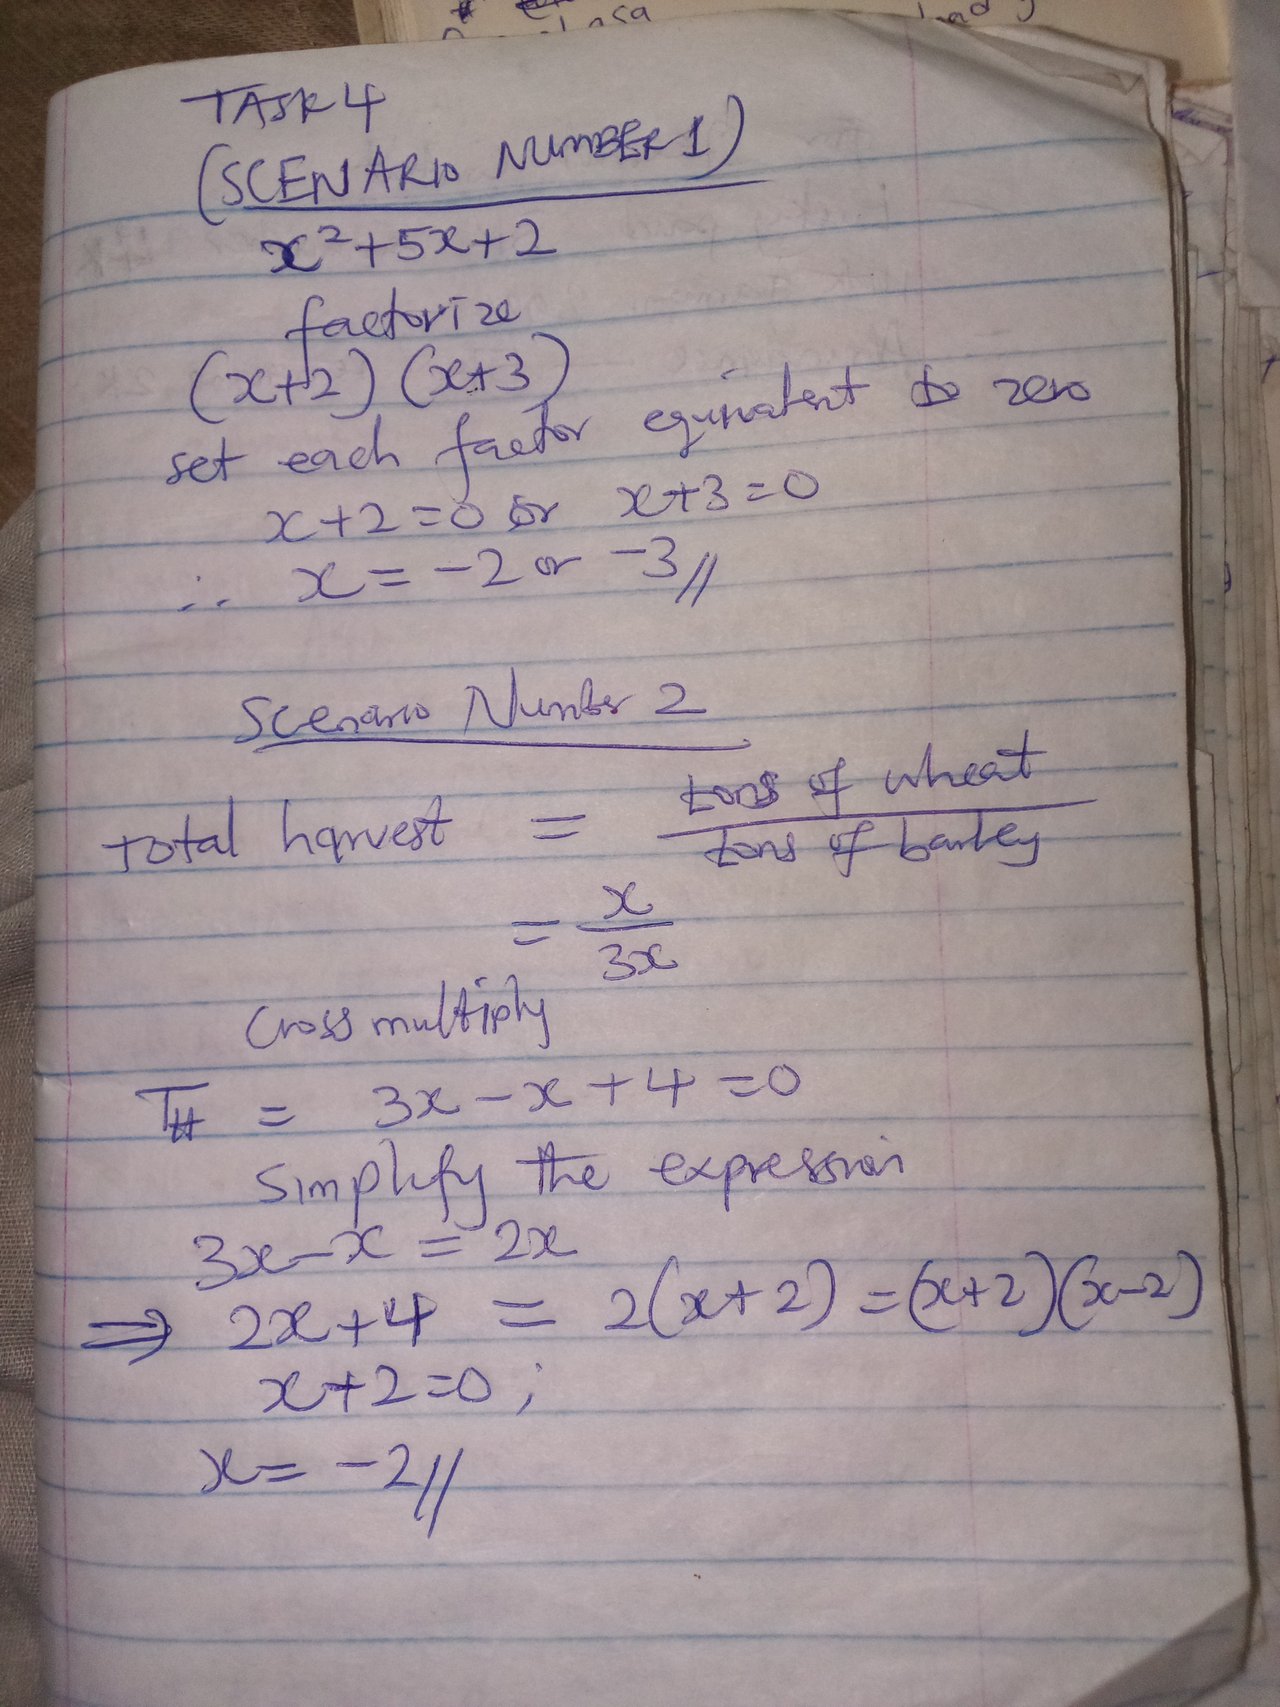 TASK 4
(SCENARIO NUMBER 1)
x²+5x+2
factorize
(x+2) (x+3)
set each factor equivalent to zero
x+2=0 or x+3=0
∴ x = -2 or -3//
Scenario Number 2
Total harvest = tons of wheat / tons of barley
= x / 3x
Cross multiply
TH = 3x - x + 4 = 0
Simplify the expression
3x-x = 2x
⇒ 2x+4 = 2(x+2) = (x+2)(x-2)
x+2=0;
x = -2//